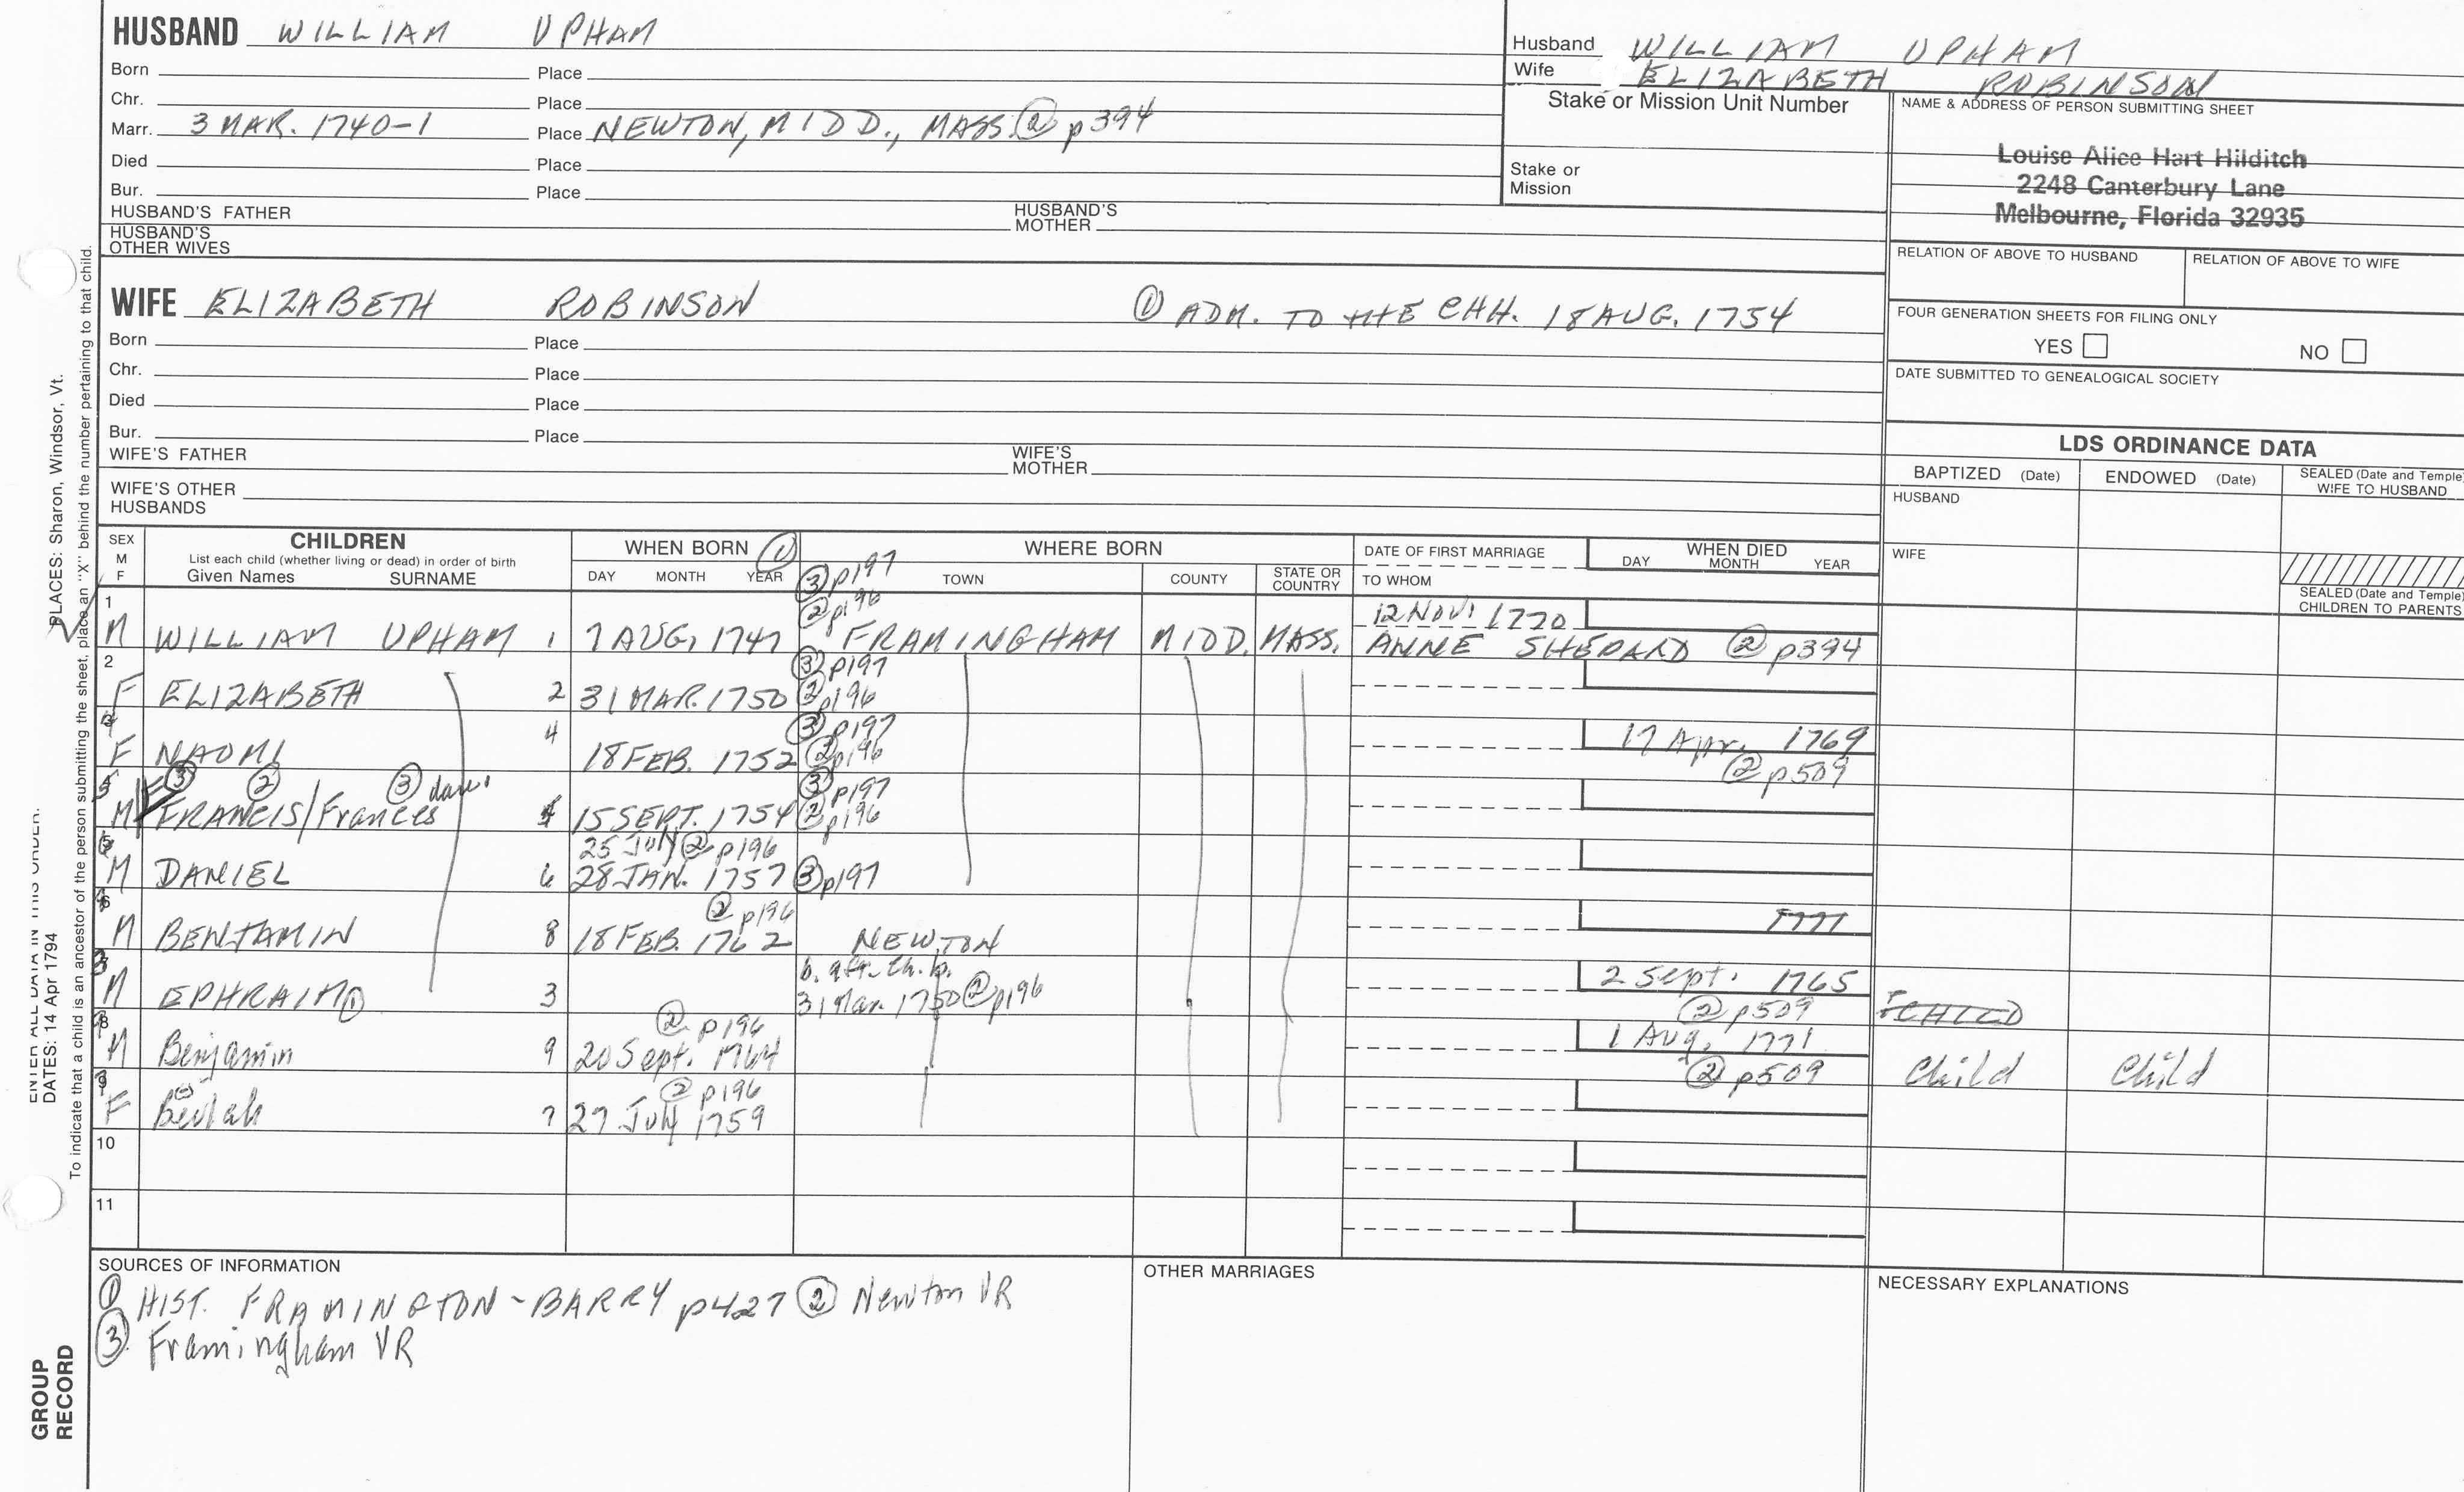 HUSBAND WILLIAM UPHAM
Born Place
Chr. Place
Marr. 3 MAR. 1740-1 Place NEWTON, MIDD., MASS. ② p394
Died Place
Bur. Place
HUSBAND'S FATHER HUSBAND'S MOTHER
HUSBAND'S OTHER WIVES
Husband WILLIAM UPHAM
Wife ELIZABETH ROBINSON
Stake or Mission Unit Number
Stake or Mission
NAME & ADDRESS OF PERSON SUBMITTING SHEET
Louise Alice Hart Hilditch
2248 Canterbury Lane
Melbourne, Florida 32935
RELATION OF ABOVE TO HUSBAND RELATION OF ABOVE TO WIFE
FOUR GENERATION SHEETS FOR FILING ONLY
YES NO
DATE SUBMITTED TO GENEALOGICAL SOCIETY
WIFE ELIZABETH ROBINSON ① ADM. TO THE CHH. 18 AUG. 1754
Born Place
Chr. Place
Died Place
Bur. Place
WIFE'S FATHER WIFE'S MOTHER
WIFE'S OTHER HUSBANDS
LDS ORDINANCE DATA
BAPTIZED (Date) ENDOWED (Date) SEALED (Date and Temple) WIFE TO HUSBAND
HUSBAND
WIFE
SEALED (Date and Temple) CHILDREN TO PARENTS
SEX M F
CHILDREN
List each child (whether living or dead) in order of birth
Given Names SURNAME
WHEN BORN ①
DAY MONTH YEAR
WHERE BORN
TOWN COUNTY STATE OR COUNTRY
DATE OF FIRST MARRIAGE
TO WHOM
WHEN DIED
DAY MONTH YEAR
③ p197
② p196
12 NOV. 1770
1 M WILLIAM UPHAM 1 7 AUG. 1747 FRAMINGHAM MIDD. MASS. ANNE SHEPARD ② p394
③ p197
2 F ELIZABETH 2 31 MAR. 1750 ② p196
③ p197
F NAOMI 4 18 FEB. 1752 ② p196 17 Apr. 1769
② p509
③ ② ③ dau. ③ p197
M/F FRANCIS/Frances 15 SEPT. 1754 ② p196
25 July ② p196
M DANIEL 6 28 JAN. 1757 ③ p197
② p196
M BENJAMIN 8 18 FEB. 1762 NEWTON 1771
b. aft. ch. b.
M EPHRAIM ① 3 31 Mar. 1750 ② p196 2 Sept. 1765
② p509 CHILD
② p196
8 M Benjamin 9 20 Sept. 1764 1 Aug. 1771
② p509 Child Child
② p196
9 F Beulah 7 27 July 1759
10
11
SOURCES OF INFORMATION
① HIST. FRAMINGTON - BARRY p427 ② Newton VR
③ Framingham VR
OTHER MARRIAGES
NECESSARY EXPLANATIONS
ENTER ALL DATA IN THIS ORDER:
DATES: 14 Apr 1794
PLACES: Sharon, Windsor, Vt.
To indicate that a child is an ancestor of the person submitting the sheet, place an "X" behind the number pertaining to that child.
GROUP RECORD